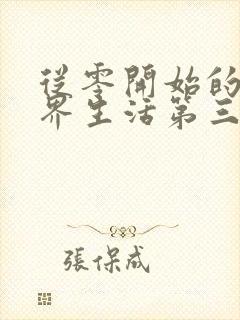 從零開始的
界生活第三
張保成